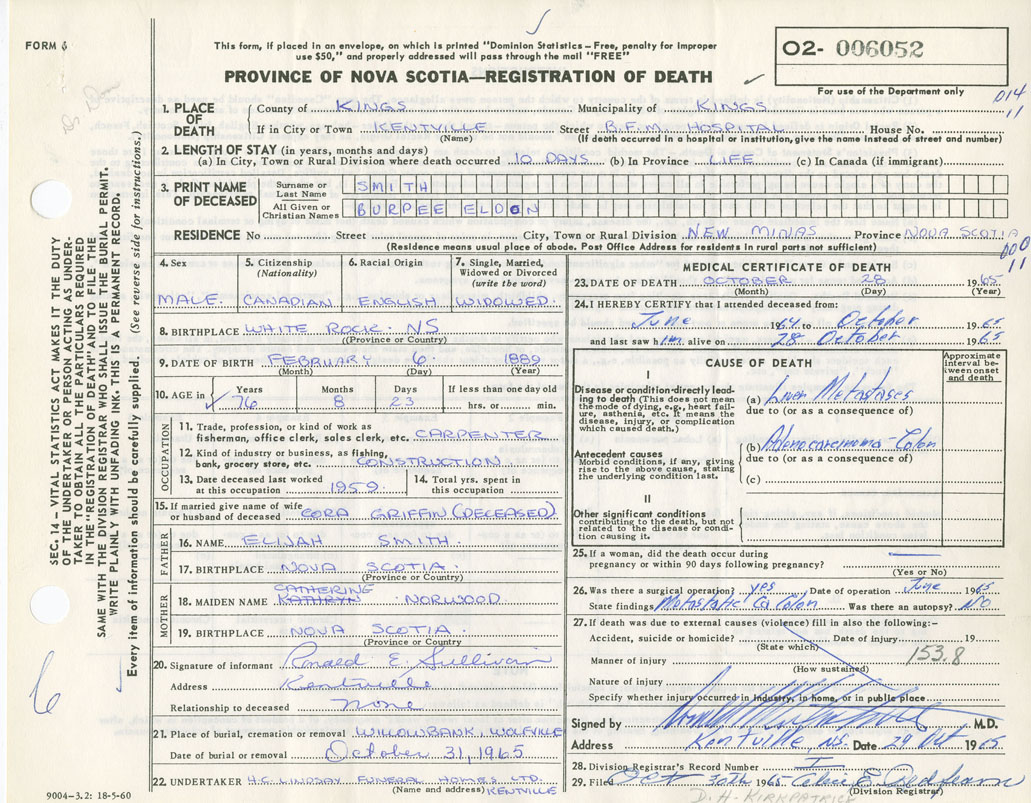 FORM 6
This form, if placed in an envelope, on which is printed "Dominion Statistics – Free, penalty for improper
use $50," and properly addressed will pass through the mail "FREE"
PROVINCE OF NOVA SCOTIA—REGISTRATION OF DEATH
02- 006052
For use of the Department only
014
11
1. PLACE OF DEATH
County of KINGS Municipality of KINGS
If in City or Town KENTVILLE Street B.F.M. HOSPITAL House No.
(Name) (If death occurred a hospital or institution, give the name instead of street and number)
2. LENGTH OF STAY (in years, months and days)
(a) In City, Town or Rural Division where death occurred 10 DAYS (b) In Province LIFE (c) In Canada (if immigrant)
3. PRINT NAME OF DECEASED
Surname or Last Name SMITH
All Given or Christian Names BURPEE ELDON
RESIDENCE No Street City, Town or Rural Division NEW MINAS Province NOVA SCOTIA
(Residence means usual place of abode. Post Office Address for residents in rural parts not sufficient)
000
11
4. Sex 5. Citizenship (Nationality) 6. Racial Origin 7. Single, Married, Widowed or Divorced (write the word)
MALE. CANADIAN ENGLISH WIDOWED.
8. BIRTHPLACE WHITE ROCK. NS
(Province or Country)
9. DATE OF BIRTH FEBRUARY 6 1889
(Month) (Day) (Year)
10. AGE in Years Months Days If less than one day old
76 8 23 hrs. or min.
OCCUPATION
11. Trade, profession, or kind of work as
fisherman, office clerk, sales clerk, etc. CARPENTER
12. Kind of industry or business, as fishing,
bank, grocery store, etc. CONSTRUCTION
13. Date deceased last worked
at this occupation 1959.
14. Total yrs. spent in
this occupation
15. If married give name of wife
or husband of deceased CORA GRIFFIN (DECEASED)
FATHER
16. NAME ELIJAH SMITH.
17. BIRTHPLACE NOVA SCOTIA.
(Province or Country)
MOTHER
CATHERINE
18. MAIDEN NAME KATHRYN NORWOOD.
19. BIRTHPLACE NOVA SCOTIA.
(Province or Country)
20. Signature of informant Ronald E. Sullivan
Address Kentville
Relationship to deceased none
21. Place of burial, cremation or removal WILLOWBANK, WOLFVILLE
Date of burial or removal October 31, 1965
22. UNDERTAKER H.C. LINDSAY FUNERAL HOMES LTD.
(Name and address) KENTVILLE
9004–3.2: 18-5-60
MEDICAL CERTIFICATE OF DEATH
23. DATE OF DEATH OCTOBER 28 1965
(Month) (Day) (Year)
24. I HEREBY CERTIFY that I attended deceased from:
June 1964 to October 1965
and last saw him alive on 28 October 1965
CAUSE OF DEATH
Approximate interval between onset and death
I
Disease or condition directly leading to death (This does not mean
the mode of dying, e.g., heart failure, asthenia, etc. It means the
disease, injury, or complication
which caused death.)
(a) Liver Metastases
due to (or as a consequence of)
(b) Adenocarcinoma - Colon
due to (or as a consequence of)
(c)
Antecedent causes
Morbid conditions, if any, giving
rise to the above cause, stating
the underlying condition last.
II
Other significant conditions
contributing to the death, but not
related to the disease or condition causing it.
25. If a woman, did the death occur during
pregnancy or within 90 days following pregnancy?
(Yes or No)
26. Was there a surgical operation? yes Date of operation June 1965
State findings Metastatic Ca Colon Was there an autopsy? NO
27. If death was due to external causes (violence) fill in also the following:-
Accident, suicide or homicide? Date of injury 19
(State which)
Manner of injury 153.8
(How sustained)
Nature of injury
Specify whether injury occurred in industry, in home, or in public place
Signed by M.D.
Address Kentville, N.S. Date 29 Oct 1965
28. Division Registrar's Record Number
29. Filed Oct 30th 1965
(Division Registrar)
D. H. KIRKPATRICK
SEC. 14 – VITAL STATISTICS ACT MAKES IT THE DUTY
OF THE UNDERTAKER OR PERSON ACTING AS UNDER-
TAKER TO OBTAIN ALL THE PARTICULARS REQUIRED
IN THE "REGISTRATION OF DEATH" AND TO FILE THE
SAME WITH THE DIVISION REGISTRAR WHO SHALL ISSUE THE BURIAL PERMIT.
WRITE PLAINLY WITH UNFADING INK. THIS IS A PERMANENT RECORD.
Every item of information should be carefully supplied. (See reverse side for instructions.)
6